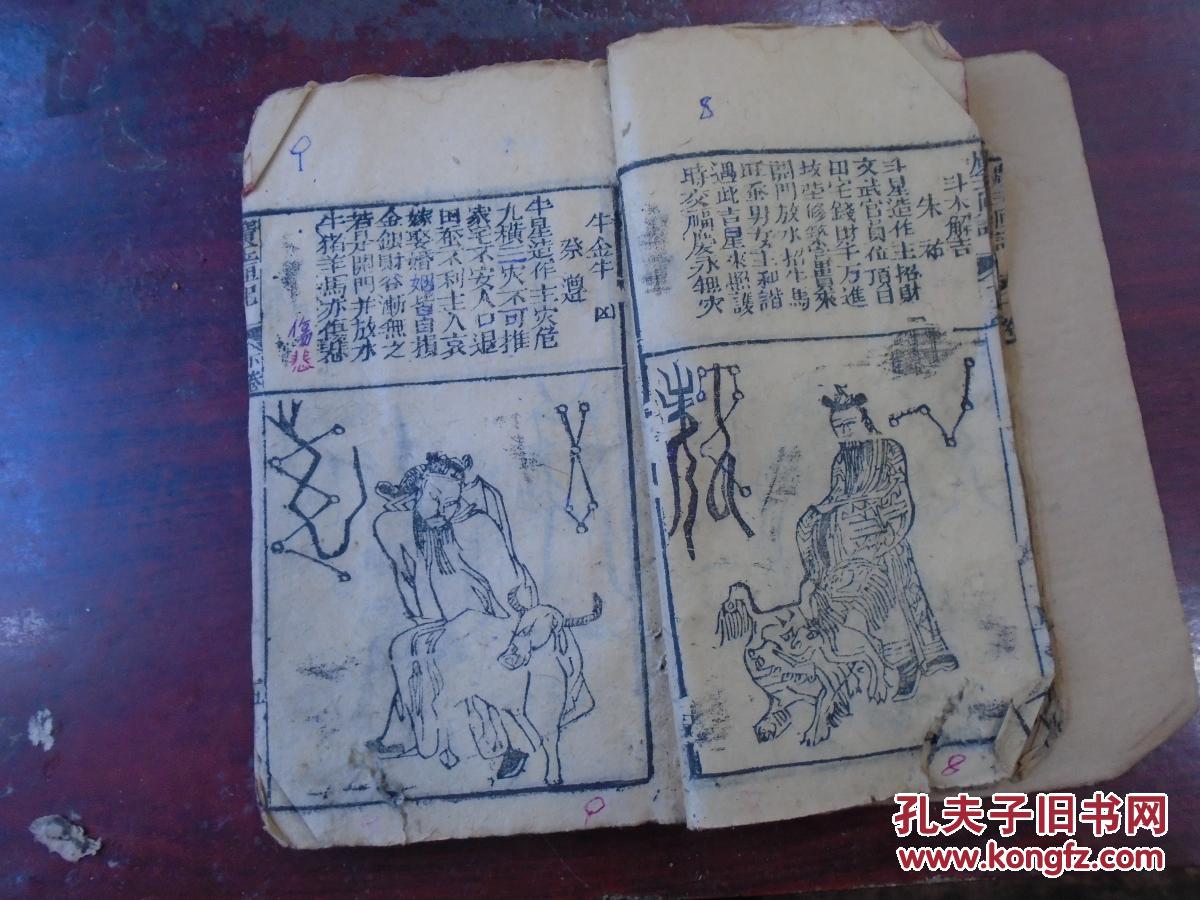 8
斗木解吉
朱祐
斗星造作主招財
文武官員位頂目
田宅錢財千万進
坟茔修筑
開門放水招牛馬
旺蚕男女主和諧
遇此吉星來照護
時交福慶永無灾
8
9
牛金牛 凶
祭遵
牛星造作主灾危
九横三灾不可推
家宅不安人口退
田蚕不利主人哀
嫁娶婚姻皆自損
金銀財谷漸無之
若是開門并放水
牛猪羊馬亦
傷悲
9
孔夫子旧书网
www.kongfz.com